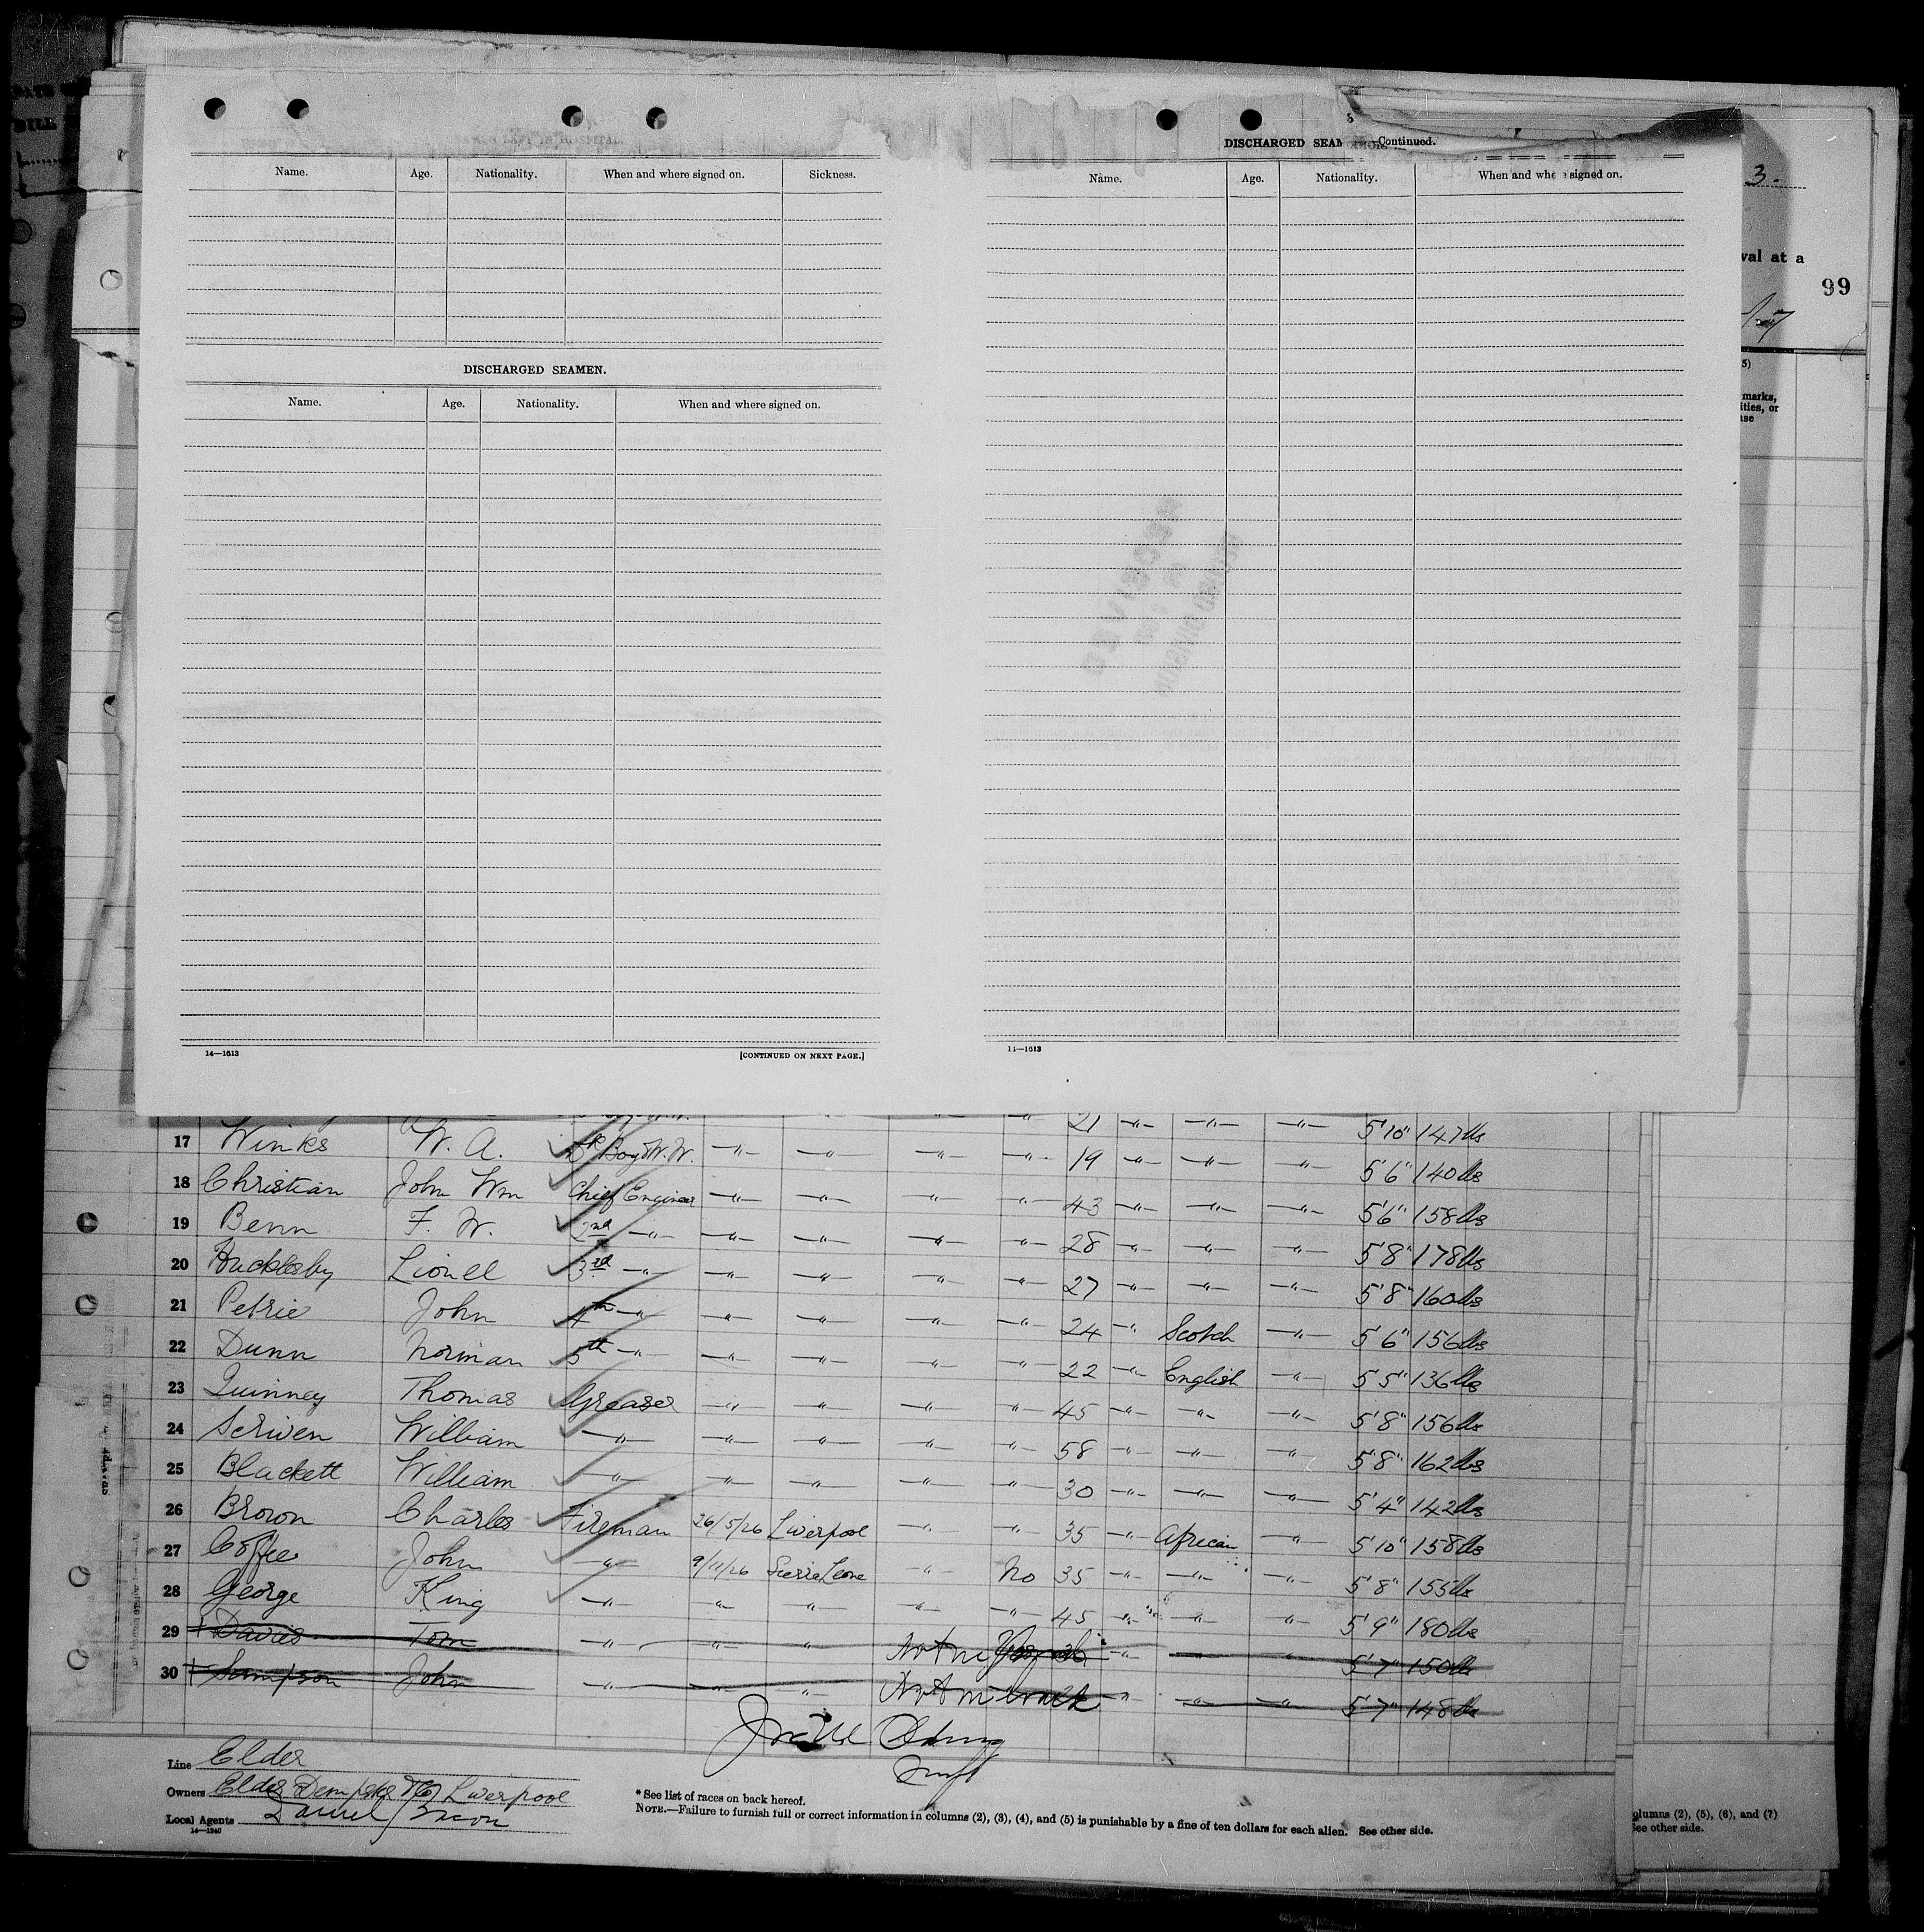 DISCHARGED SEAM —Continued.
Name. Age. Nationality. When and where signed on. Sickness.
Name. Age. Nationality. When and whe signed on.
3.
val at a
99
DISCHARGED SEAMEN.
Name. Age. Nationality. When and where signed on.
marks,
ities, or
use
14—1613 [CONTINUED ON NEXT PAGE.]
14—1613
21 —"— —"— —"— 5'10" 147 lbs
17 Winks W. A. Boy W.W. —"— —"— —"— —"— 19 —"— —"— —"— 5'6" 140 lbs
18 Christian John Wm Chief Engineer —"— —"— —"— —"— 43 —"— —"— —"— 5'6" 158 lbs
19 Benn F. W. 2nd —"— —"— —"— —"— —"— 28 —"— —"— —"— 5'8" 178 lbs
20 Hucklesby Lionel 3rd —"— —"— —"— —"— —"— 27 —"— —"— —"— 5'8" 160 lbs
21 Petrie John 4th —"— —"— —"— —"— —"— 24 —"— Scotch —"— 5'6" 156 lbs
22 Dunn Norman 5th —"— —"— —"— —"— —"— 22 —"— English —"— 5'5" 136 lbs
23 Quinney Thomas Greaser —"— —"— —"— —"— 45 —"— —"— —"— 5'8" 156 lbs
24 Scriven William —"— —"— —"— —"— —"— 58 —"— —"— —"— 5'8" 162 lbs
25 Blackett William —"— —"— —"— —"— —"— 30 —"— —"— —"— 5'4" 142 lbs
26 Brown Charles Fireman 26/5/26 Liverpool —"— —"— 35 —"— African —"— 5'10" 158 lbs
27 Coffee John —"— 9/11/26 Sierra Leone —"— No 35 —"— —"— —"— 5'8" 155 lbs
28 George King —"— —"— —"— —"— —"— 45 —"— —"— —"— 5'9" 180 lbs
29 + Davies Tom —"— —"— —"— Not on —"— —"— 5'7" 150 lbs
30 + Sampson John —"— —"— —"— Not on —"— —"— —"— 5'7" 148 lbs
Line Elder
Owners Elder Dempster & Co Liverpool
Local Agents Daniel Bacon
14—1240
* See list of races on back hereof.
NOTE.—Failure to furnish full or correct information in columns (2), (3), (4), and (5) is punishable by a fine of ten dollars for each alien. See other side.
olumns (2), (5), (6), and (7)
See other side.